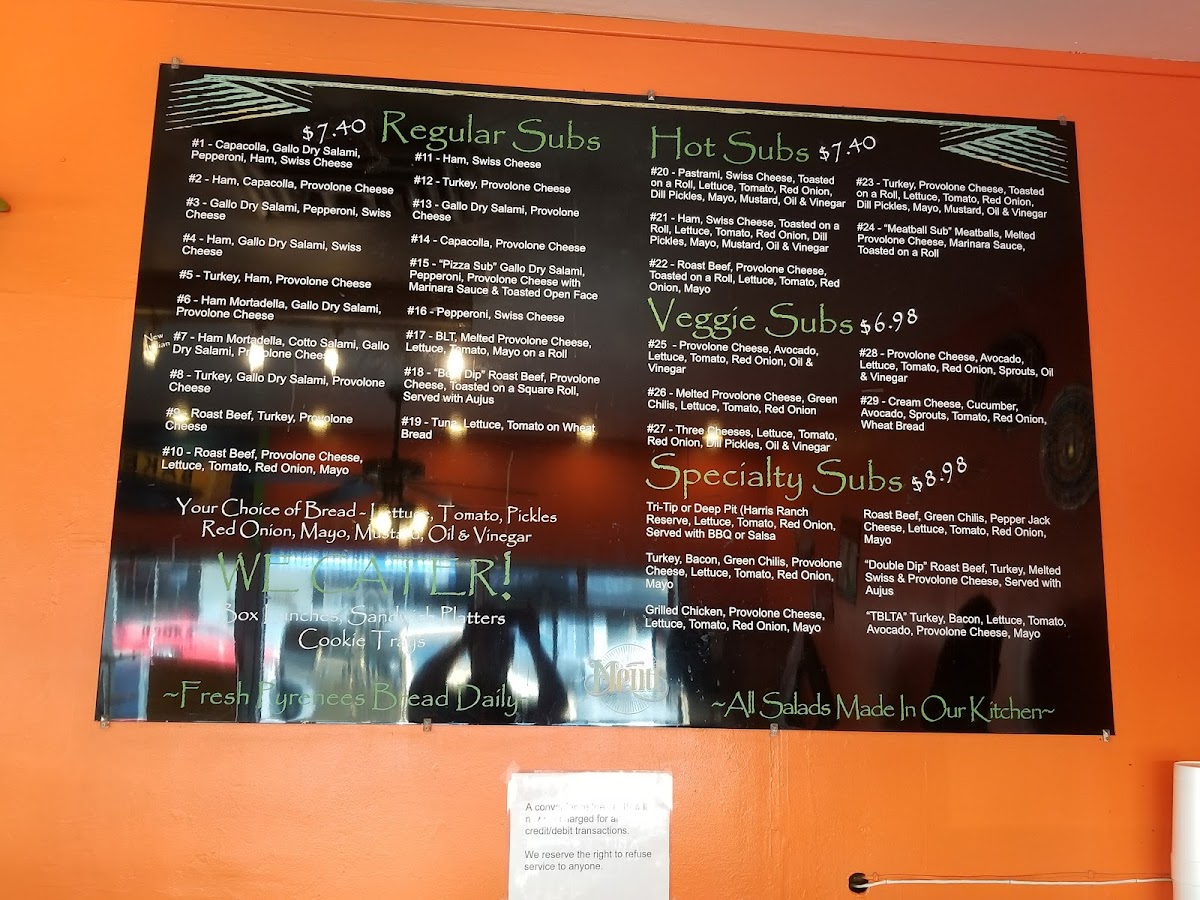 $7.40 Regular Subs
#1 - Capacolla, Gallo Dry Salami,
Pepperoni, Ham, Swiss Cheese
#2 - Ham, Capacolla, Provolone Cheese
#3 - Gallo Dry Salami, Pepperoni, Swiss
Cheese
#4 - Ham, Gallo Dry Salami, Swiss
Cheese
#5 - Turkey, Ham, Provolone Cheese
#6 - Ham Mortadella, Gallo Dry Salami,
Provolone Cheese
New
#7 - Ham Mortadella, Cotto Salami, Gallo
Dry Salami, Provolone Cheese
#8 - Turkey, Gallo Dry Salami, Provolone
Cheese
#9 - Roast Beef, Turkey, Provolone
Cheese
#10 - Roast Beef, Provolone Cheese,
Lettuce, Tomato, Red Onion, Mayo
#11 - Ham, Swiss Cheese
#12 - Turkey, Provolone Cheese
#13 - Gallo Dry Salami, Provolone
Cheese
#14 - Capacolla, Provolone Cheese
#15 - "Pizza Sub" Gallo Dry Salami,
Pepperoni, Provolone Cheese with
Marinara Sauce & Toasted Open Face
#16 - Pepperoni, Swiss Cheese
#17 - BLT, Melted Provolone Cheese,
Lettuce, Tomato, Mayo on a Roll
#18 - "Beef Dip" Roast Beef, Provolone
Cheese, Toasted on a Square Roll,
Served with Aujus
#19 - Tuna, Lettuce, Tomato on Wheat
Bread
Your Choice of Bread - Lettuce, Tomato, Pickles
Red Onion, Mayo, Mustard, Oil & Vinegar
WE CATER!
Box Lunches, Sandwich Platters
Cookie Trays
~Fresh Pyrenees Bread Daily~
Hot Subs $7.40
#20 - Pastrami, Swiss Cheese, Toasted
on a Roll, Lettuce, Tomato, Red Onion,
Dill Pickles, Mayo, Mustard, Oil & Vinegar
#21 - Ham, Swiss Cheese, Toasted on a
Roll, Lettuce, Tomato, Red Onion, Dill
Pickles, Mayo, Mustard, Oil & Vinegar
#22 - Roast Beef, Provolone Cheese,
Toasted on a Roll, Lettuce, Tomato, Red
Onion, Mayo
#23 - Turkey, Provolone Cheese, Toasted
on a Roll, Lettuce, Tomato, Red Onion,
Dill Pickles, Mayo, Mustard, Oil & Vinegar
#24 - "Meatball Sub" Meatballs, Melted
Provolone Cheese, Marinara Sauce,
Toasted on a Roll
Veggie Subs $6.98
#25 - Provolone Cheese, Avocado,
Lettuce, Tomato, Red Onion, Oil &
Vinegar
#26 - Melted Provolone Cheese, Green
Chilis, Lettuce, Tomato, Red Onion
#27 - Three Cheeses, Lettuce, Tomato,
Red Onion, Dill Pickles, Oil & Vinegar
#28 - Provolone Cheese, Avocado,
Lettuce, Tomato, Red Onion, Sprouts, Oil
& Vinegar
#29 - Cream Cheese, Cucumber,
Avocado, Sprouts, Tomato, Red Onion,
Wheat Bread
Specialty Subs $8.98
Tri-Tip or Deep Pit (Harris Ranch
Reserve, Lettuce, Tomato, Red Onion,
Served with BBQ or Salsa
Turkey, Bacon, Green Chilis, Provolone
Cheese, Lettuce, Tomato, Red Onion,
Mayo
Grilled Chicken, Provolone Cheese,
Lettuce, Tomato, Red Onion, Mayo
Roast Beef, Green Chilis, Pepper Jack
Cheese, Lettuce, Tomato, Red Onion,
Mayo
"Double Dip" Roast Beef, Turkey, Melted
Swiss & Provolone Cheese, Served with
Aujus
"TBLTA" Turkey, Bacon, Lettuce, Tomato,
Avocado, Provolone Cheese, Mayo
Menu
~All Salads Made In Our Kitchen~
A
charged for
credit/debit transactions.
We reserve the right to refuse
service to anyone.